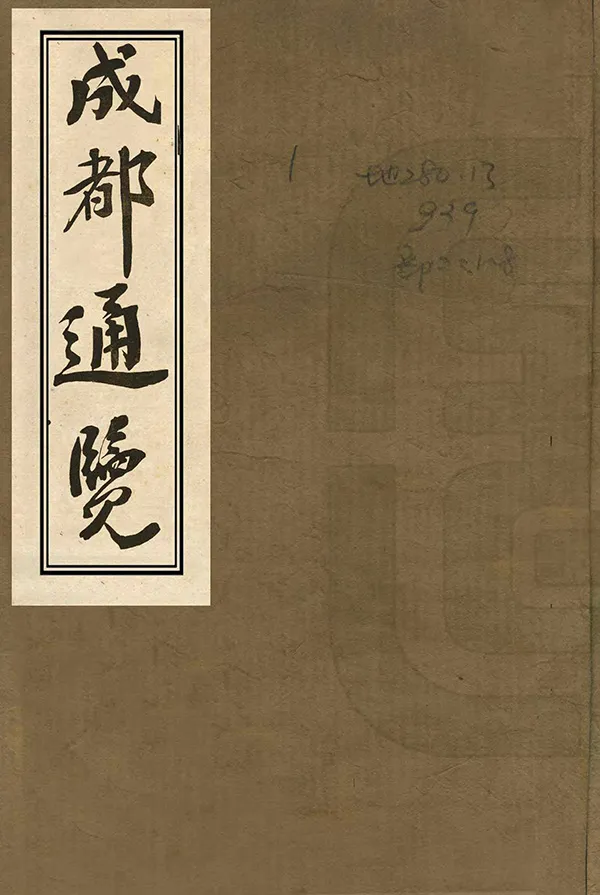 成都通覽
1
地280.13
929